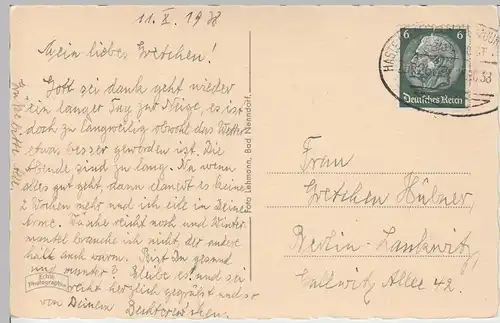 11. X. 1938
Mein liebes Gretchen!
Gott sei dank geht wieder
ein langer Tag zur Neige, es ist
doch zu langweilig obwohl das Wetter
etwas besser geworden ist. Die
Abende sind zu lang. Na wenn
alles gut geht, dann dauert es keine
2 Wochen mehr und ich eile in Deine
Arme. Wäsche reicht noch und Winter
mantel brauche ich nicht, der andere
hält auch warm. Bist Du gesund
und munter? Bleibe es und sei
recht herzlich gegrüßt und
von Deinem
Echte
Photographie
Foto Lehmann, Bad Nenndorf
6 6
Deutsches Reich
38
Frau
Gretchen Hübner
Berlin-Lankwitz
Gallwitz Allee 42.